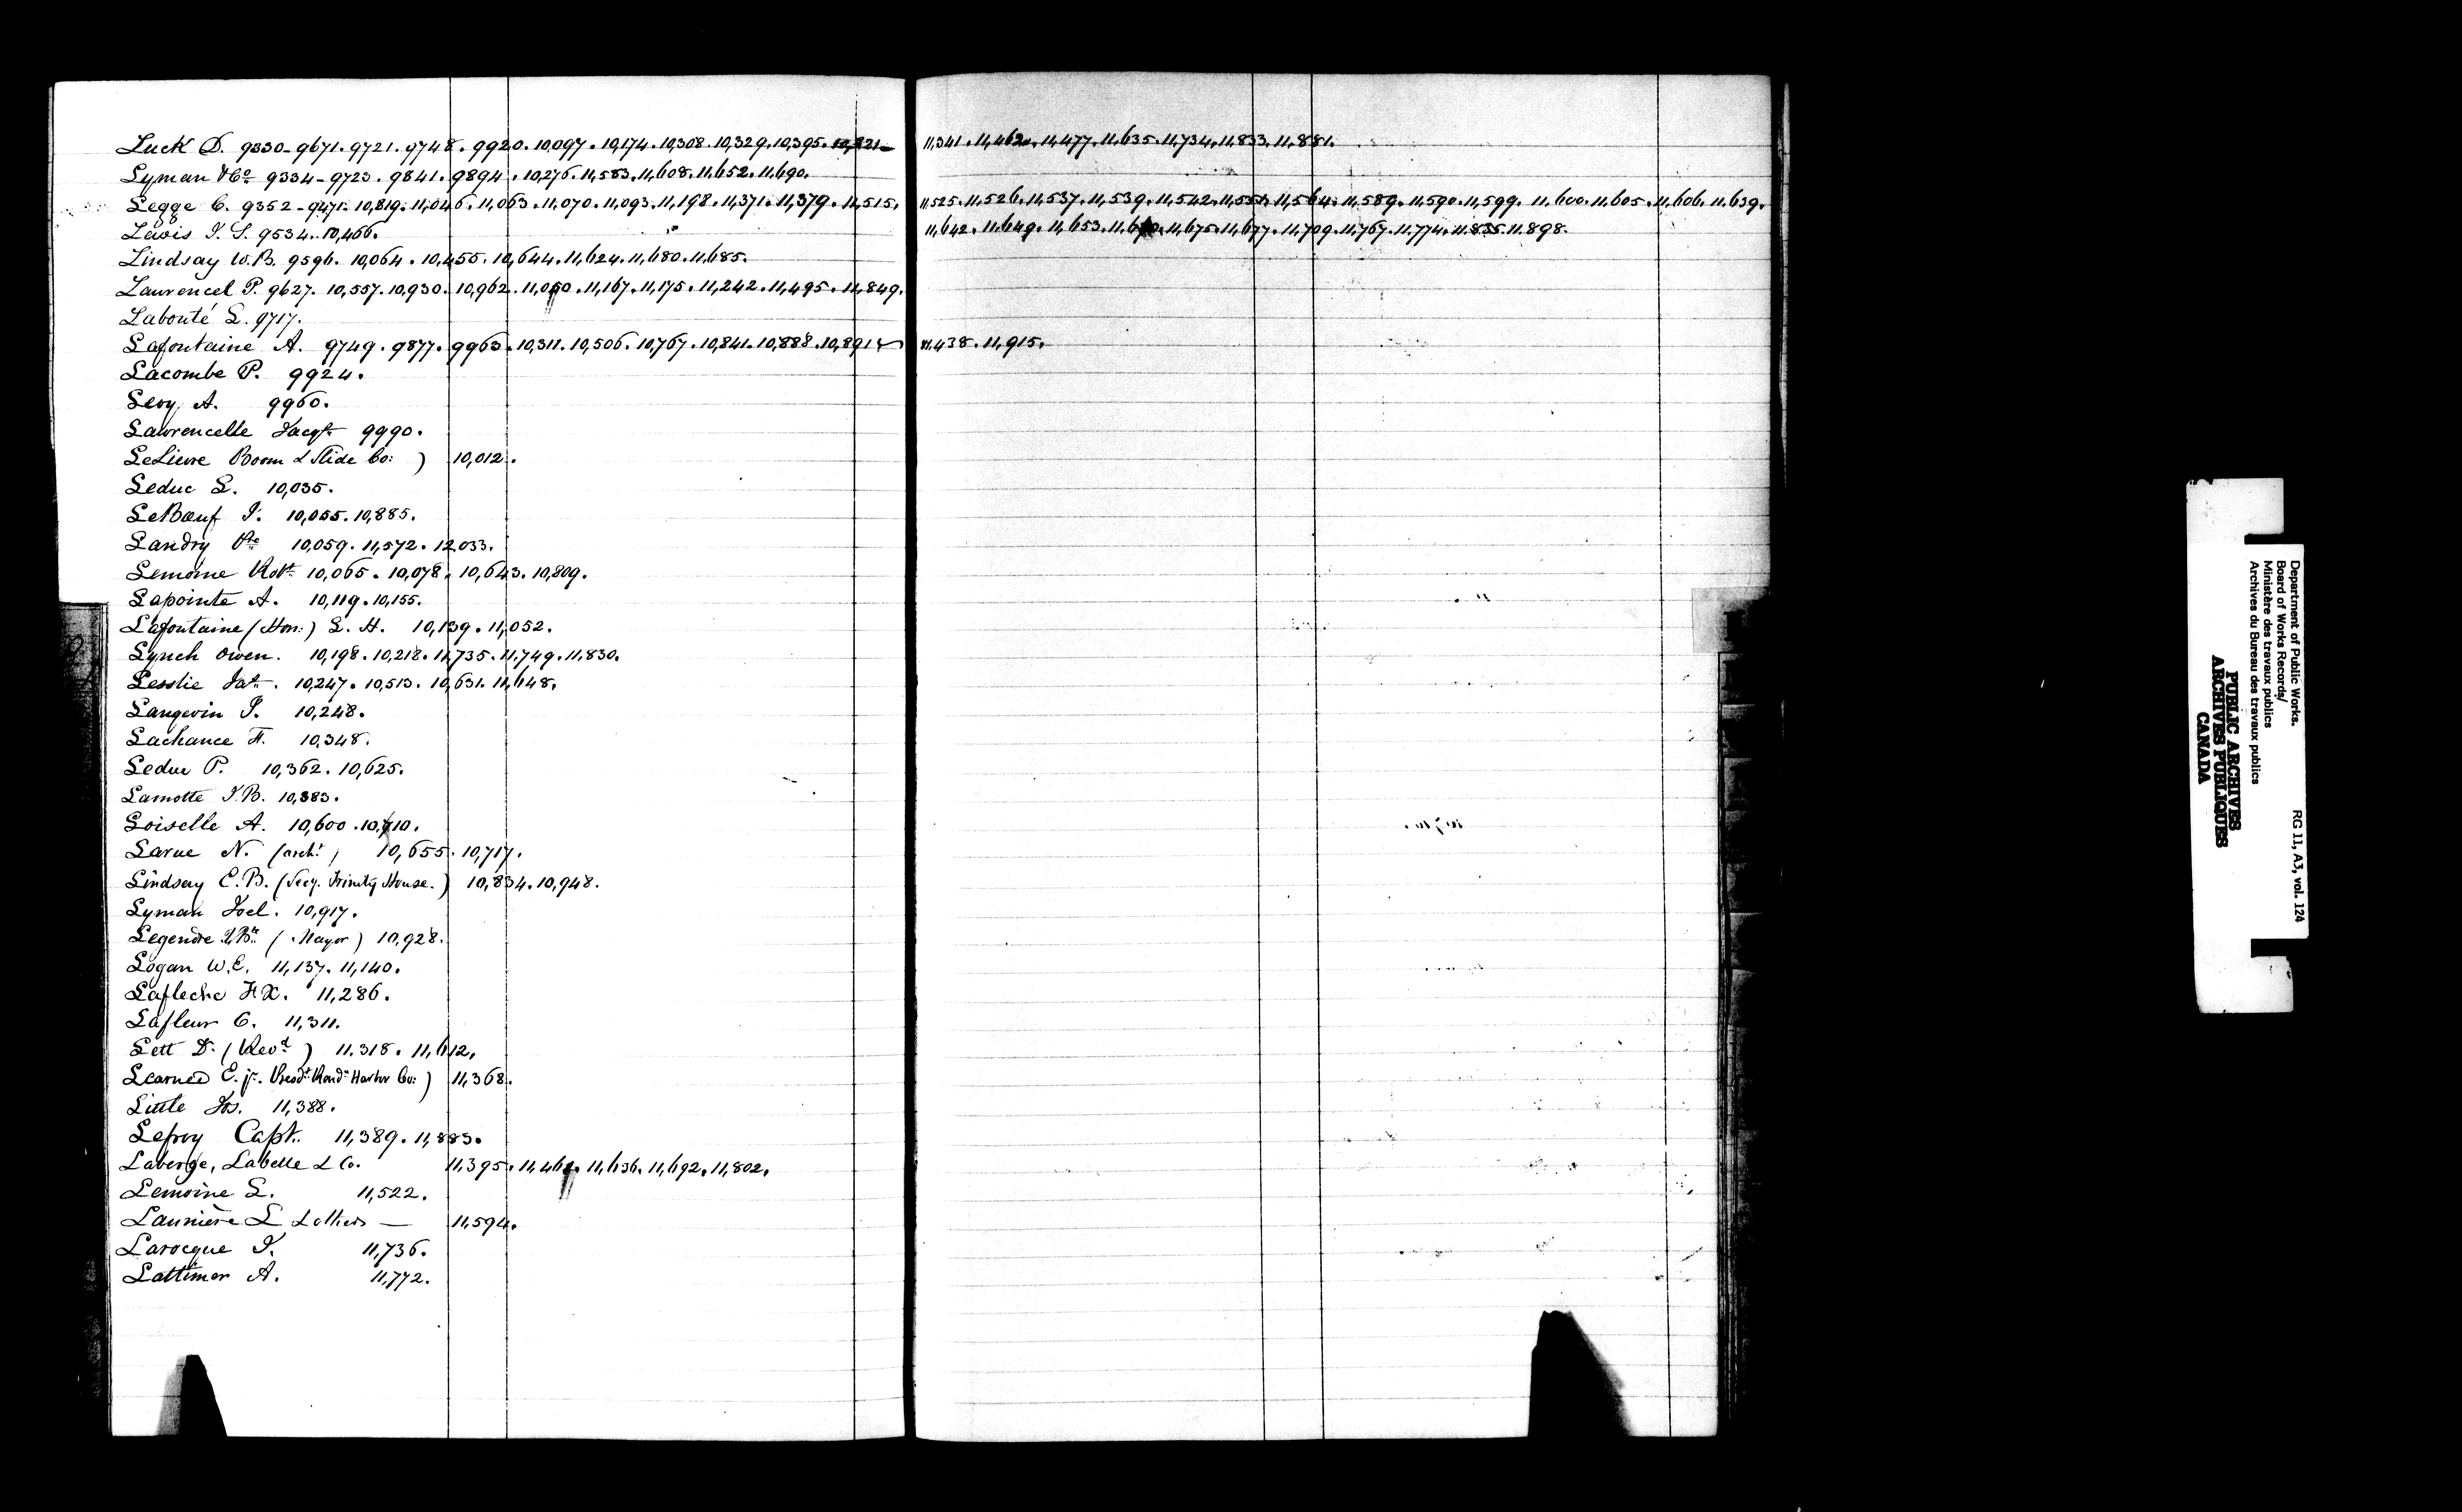 Luck D. 9330-9671.9721.9748.9920.10,097.10,174.10,308.10,329.10,395.
Lyman & Co 9334-9723.9841.9894.10,276.11,583.11,608.11,652.11,690.
Legge C. 9352-9471.10,819.11,046.11,063.11,070.11,093.11,198.11,371.11,379.11,515.
Lewis J. S. 9534.10,466.
Lindsay W.B. 9596.10,064.10,455.10,644.11,624.11,680.11,685.
Laurencel P. 9627.10,557.10,930.10,962.11,050.11,167.11,175.11,242.11,495.11,849.
Labonté L. 9717.
Lafontaine A. 9749.9877.9963.10,311.10,506.10,767.10,841.10,888.10,891
Lacombe P. 9924.
Levy A. 9960.
Lawrencelle Jacqt 9990.
LeLievre Boom & Slide Co: ) 10,012.
Leduc L. 10,035.
LeBœuf J. 10,055.10,885.
Landry Pre 10,059.11,572.12,033.
Lemoine Robt 10,065.10,078.10,643.10,809.
Lapointe A. 10,119.10,155.
Lafontaine (Hon:) L. H. 10,139.11,052.
Lynch Owen. 10,198.10,218.11,735.11,749.11,830.
Lesslie Jas. 10,247.10,513.10,631.11,648.
Langevin J. 10,248.
Lachance F. 10,348.
Leduc P. 10,362.10,625.
Lamotte J.B. 10,383.
Loiselle A. 10,600.10,710.
Larue N. (archt) 10,655.10,717.
Lindsay E.B. (Secy. Trinity House.) 10,834.10,948.
Lyman Joel. 10,917.
Legendre J.Bte (Mayor) 10,928.
Logan W.E. 11,137.11,140.
Lafleche F.X. 11,286.
Lafleur C. 11,311.
Lett D. (Revd) 11,318.11,612.
Learned E. jr. Presdt Rond. Harbor Co:) 11,368.
Little Jos. 11,388.
Lefroy Capt. 11,389.11,883.
Laberge, Labelle & Co. 11,395.11,461.11,636.11,692.11,802.
Lemoine L. 11,522.
Launière L & others — 11,594.
Larocque J. 11,736.
Lattimer A. 11,772.
11,341.11,462.11,477.11,635.11,734.11,833.11,881.
11,525.11,526.11,537.11,539.11,542.11,557.11,564.11,589.11,590.11,599.11,600.11,605.11,606.11,639.
11,642.11,649.11,653.11,675.11,677.11,709.11,767.11,774.11,835.11,898.
11,438.11,915.
Department of Public Works. RG 11, A3, vol. 124
Board of Works Records/
Ministère des travaux publics
Archives du Bureau des travaux publics
PUBLIC ARCHIVES
ARCHIVES PUBLIQUES
CANADA